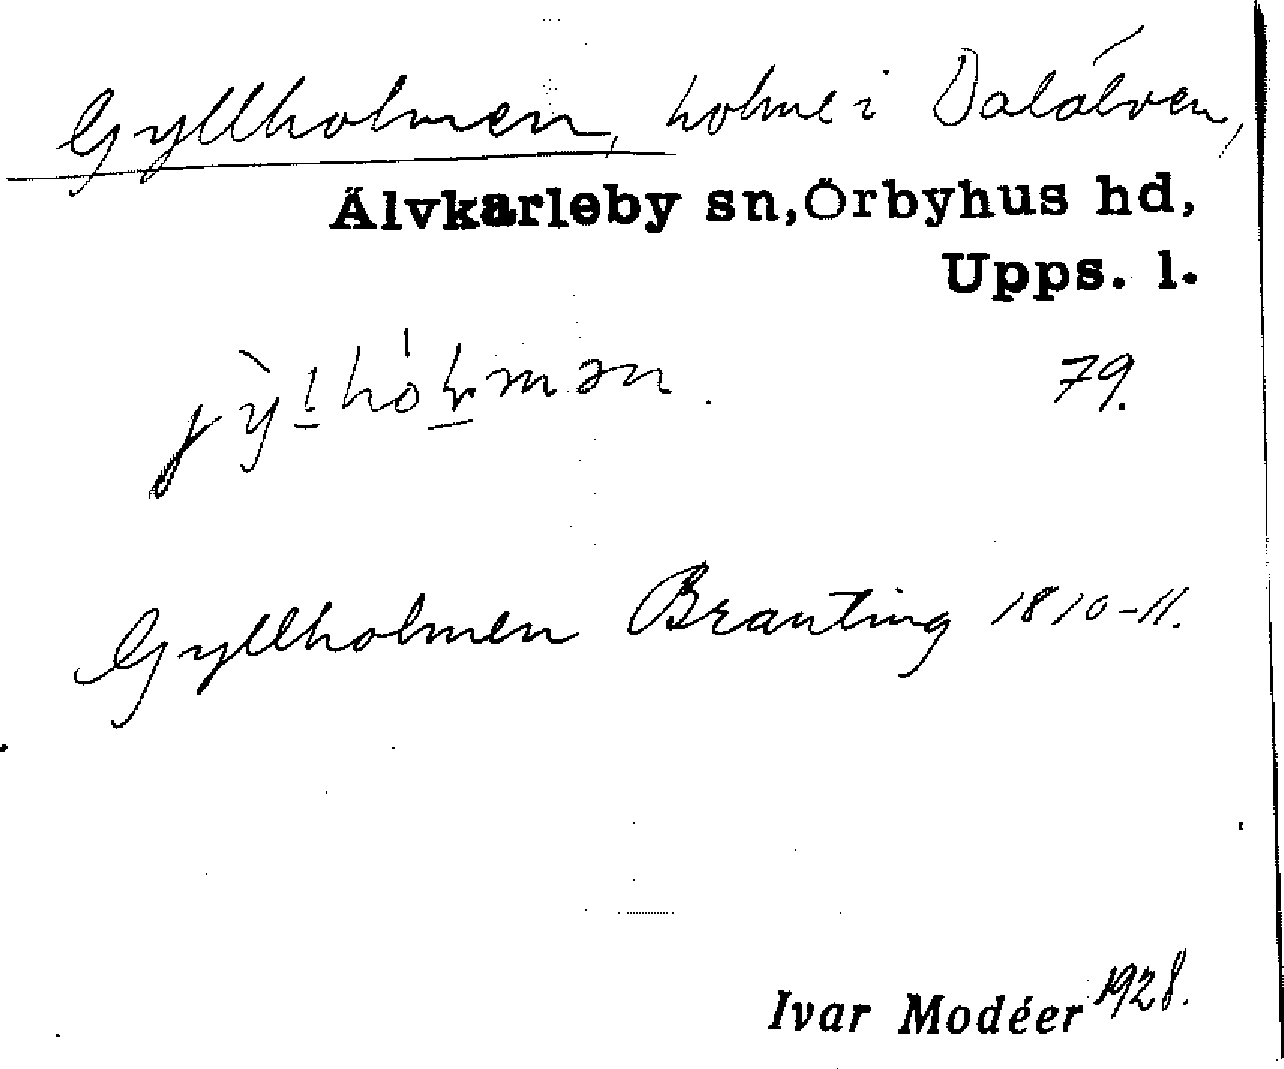 Gyllholmen, holme i Dalälven,
Älvkarleby sn, Örbyhus hd,
Upps. l.
79.
Gyllholmen Branting 1810-11.
Ivar Modéer 1928.